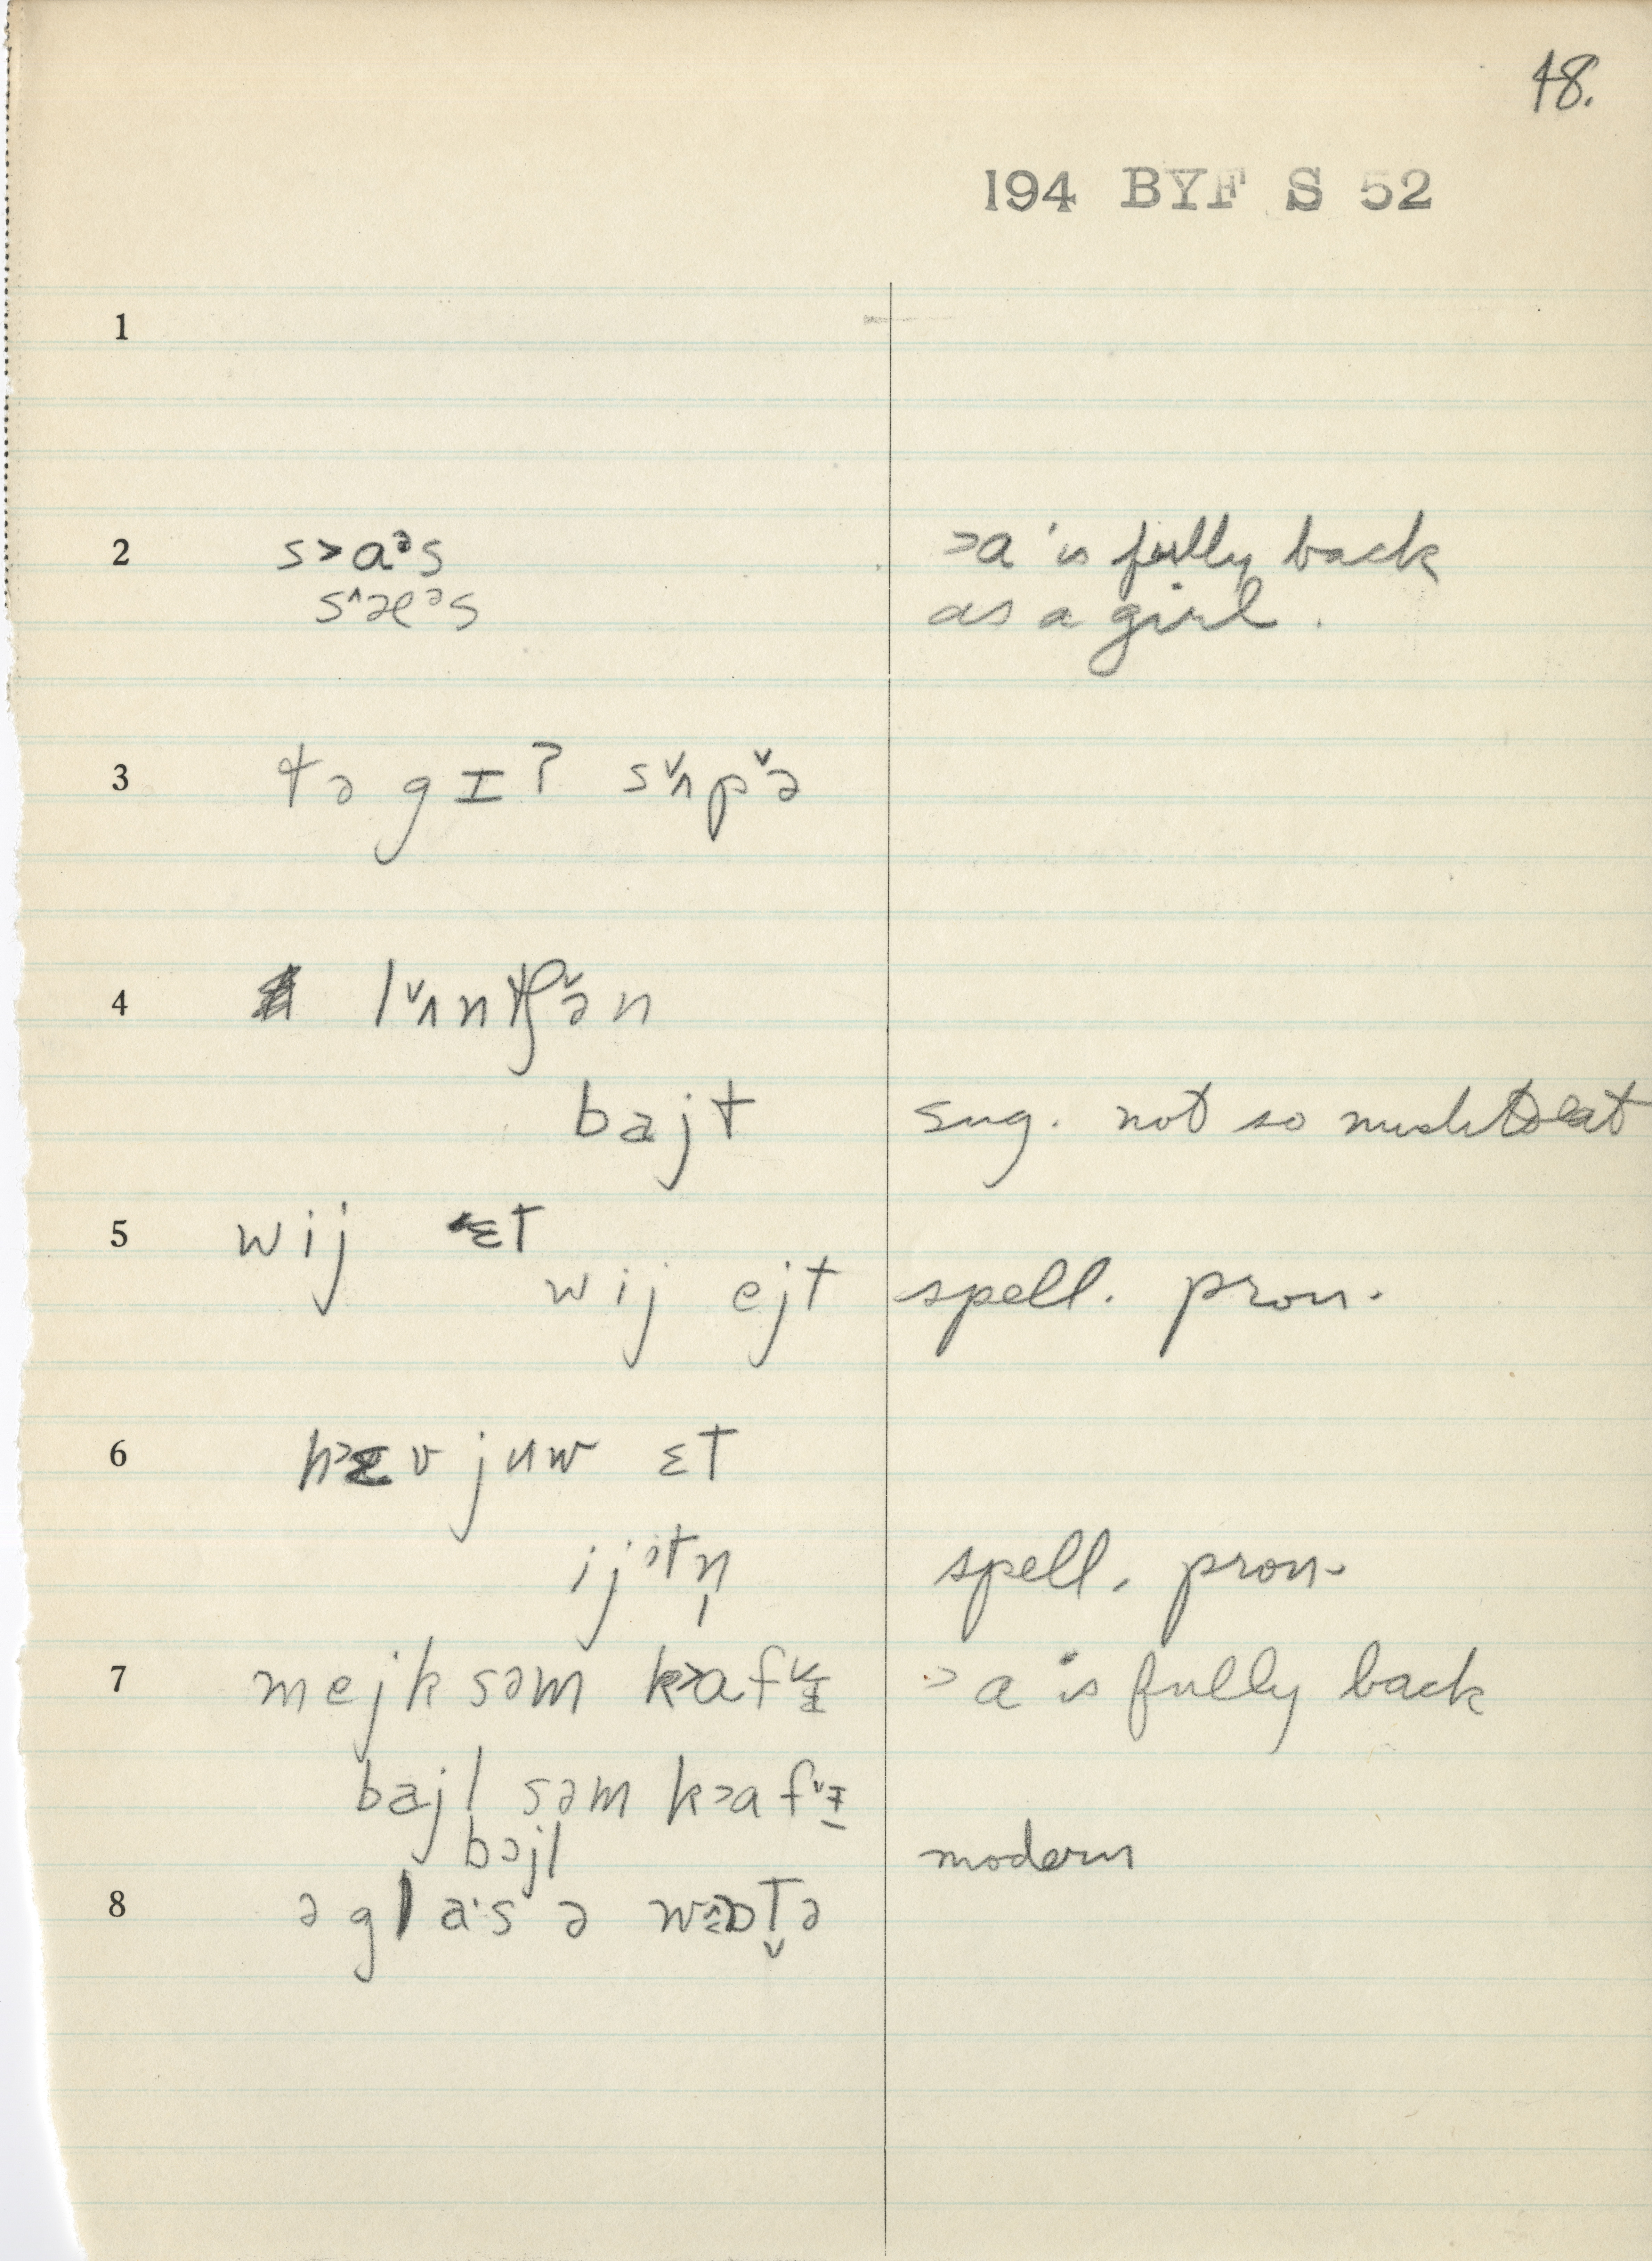 48.
194 BYF S 52
1
2 s>aᵊs >a is fully back
s^æᵊs as a girl.
3 tə gɪʔ sˇʌpˇə
4 lˇʌntʃˇən
bajt sug. not so much to eat
5 wij ɛt
wij ejt spell. pron.
6 v juw ɛt
ijᵊtn̩ spell. pron.
7 mejk səm k>afˇɪ >a is fully back
bajl səm k>afˇɪ
bɔjl modern
8 ə glas ə